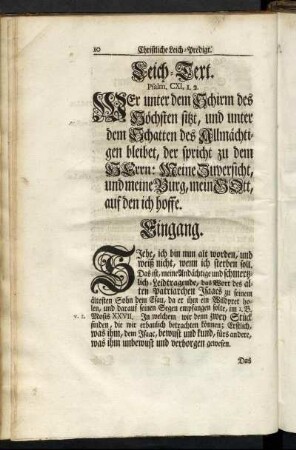 10 Christliche Leich-Predigt.
Leich-Text.
Psalm. CXI. 1. 2.
WEr unter dem Schirm des
Höchsten sitzt, und unter
dem Schatten des Allmächti-
gen bleibet, der spricht zu dem
HErrn: Meine Zuversicht,
und meine Burg, mein GOtt,
auf den ich hoffe.
Eingang.
SIehe, ich bin nun alt worden, und
weiß nicht, wenn ich sterben soll.
Das ist, meine Andächtige und schmertz-
lich-Leidtragende, das Wort des al-
ten Patriarchen Isaacs zu seinem
ältesten Sohn dem Esau, da er ihm ein Wildpret ho-
len, und darauf seinen Segen empfangen solte, im 1. B.
v. 2. Mosis XXVII. In welchem wir denn zwey Stück
finden, die wir erbaulich betrachten können; Erstlich,
was ihm, dem Isaac, bewust und kund, fürs andere,
was ihm unbewust und verborgen gewesen.
Das